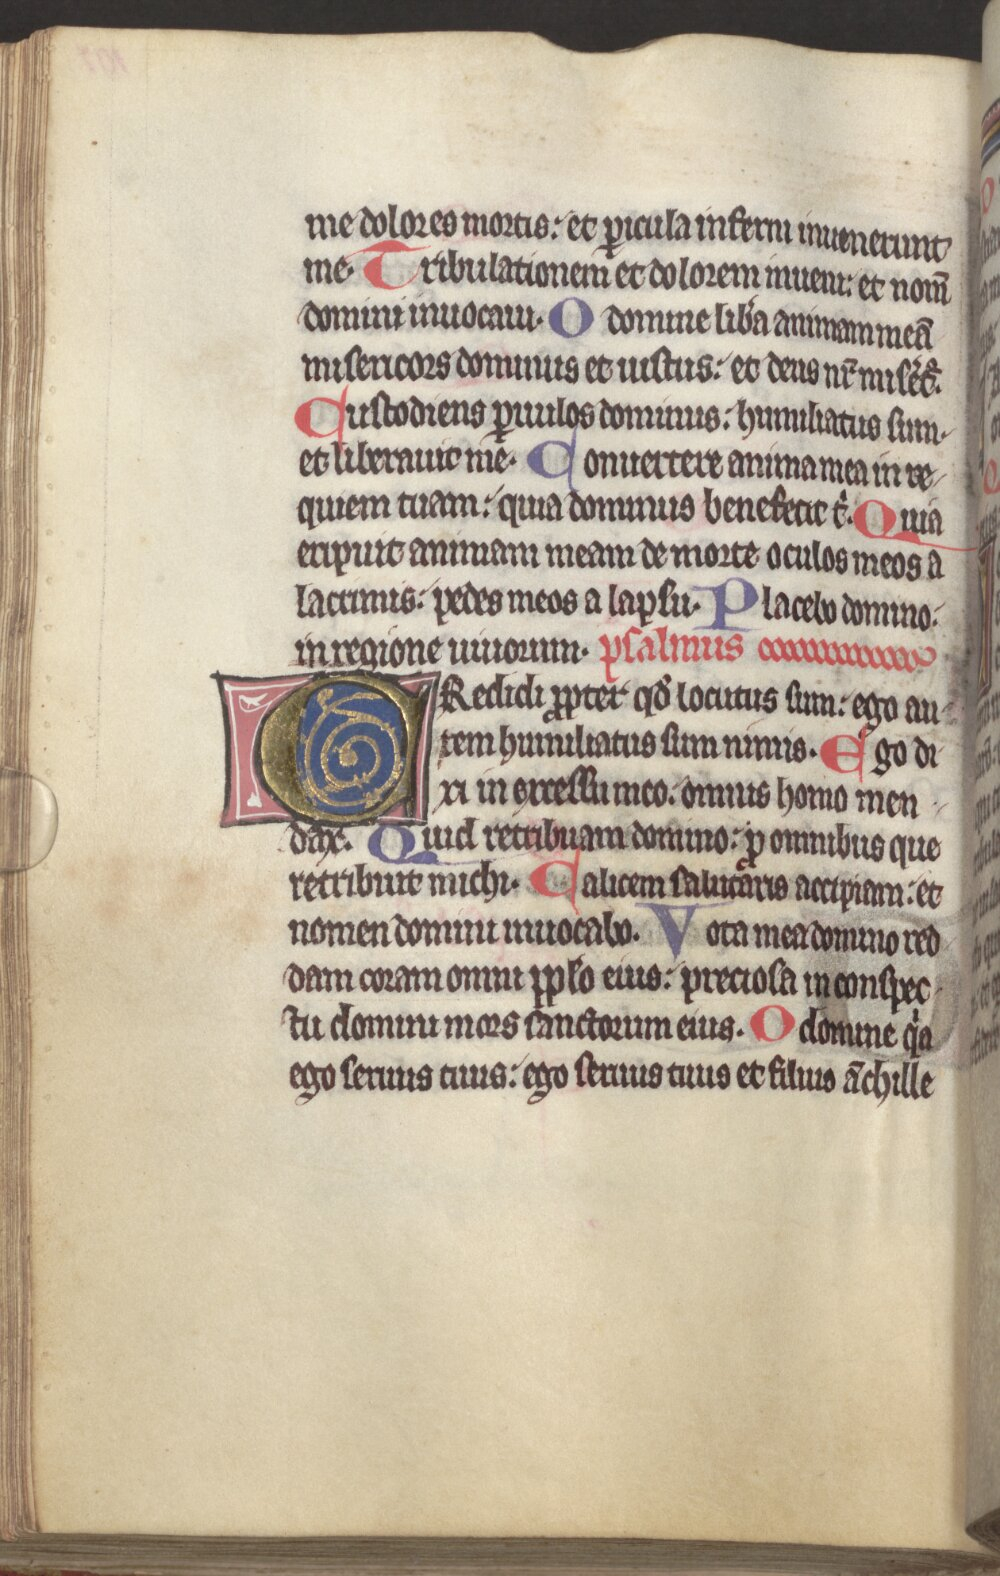 me dolores mortis: et ꝑicula inferni inuenerunt
me. Tribulationem et dolorem inueni: et nom̄
domini inuocaui. O domine lib̓a animam meā
misericors dominus et iustus: et deus nr̄ miser̓et̓.
Custodiens ꝑuulos dominus: humiliatus sum
et liberauit me. Conuertere anima mea in re
quiem tuam: quia dominus benefecit t̓. Quia
eripuit animam meam de morte oculos meos a
lacrimis: pedes meos a lapsu. Placebo domino:
in regione uiuorum. psalmus
CRedidi ꝓpter qd̓ locutus sum: ego au
tem humiliatus sum nimis. Ego di
xi in excessu meo: omnis homo men
dax. Quid retribuam domino: ꝓ omnibus que
retribuit michi. Calicem salutaris accipiam: et
nomen domini inuocabo. Vota mea domino red
dam coram omni pplo eius: preciosa in conspec
tu domini mors sanctorum eius. O domine qͥa
ego seruus tuus: ego seruus tuus et filius ācille